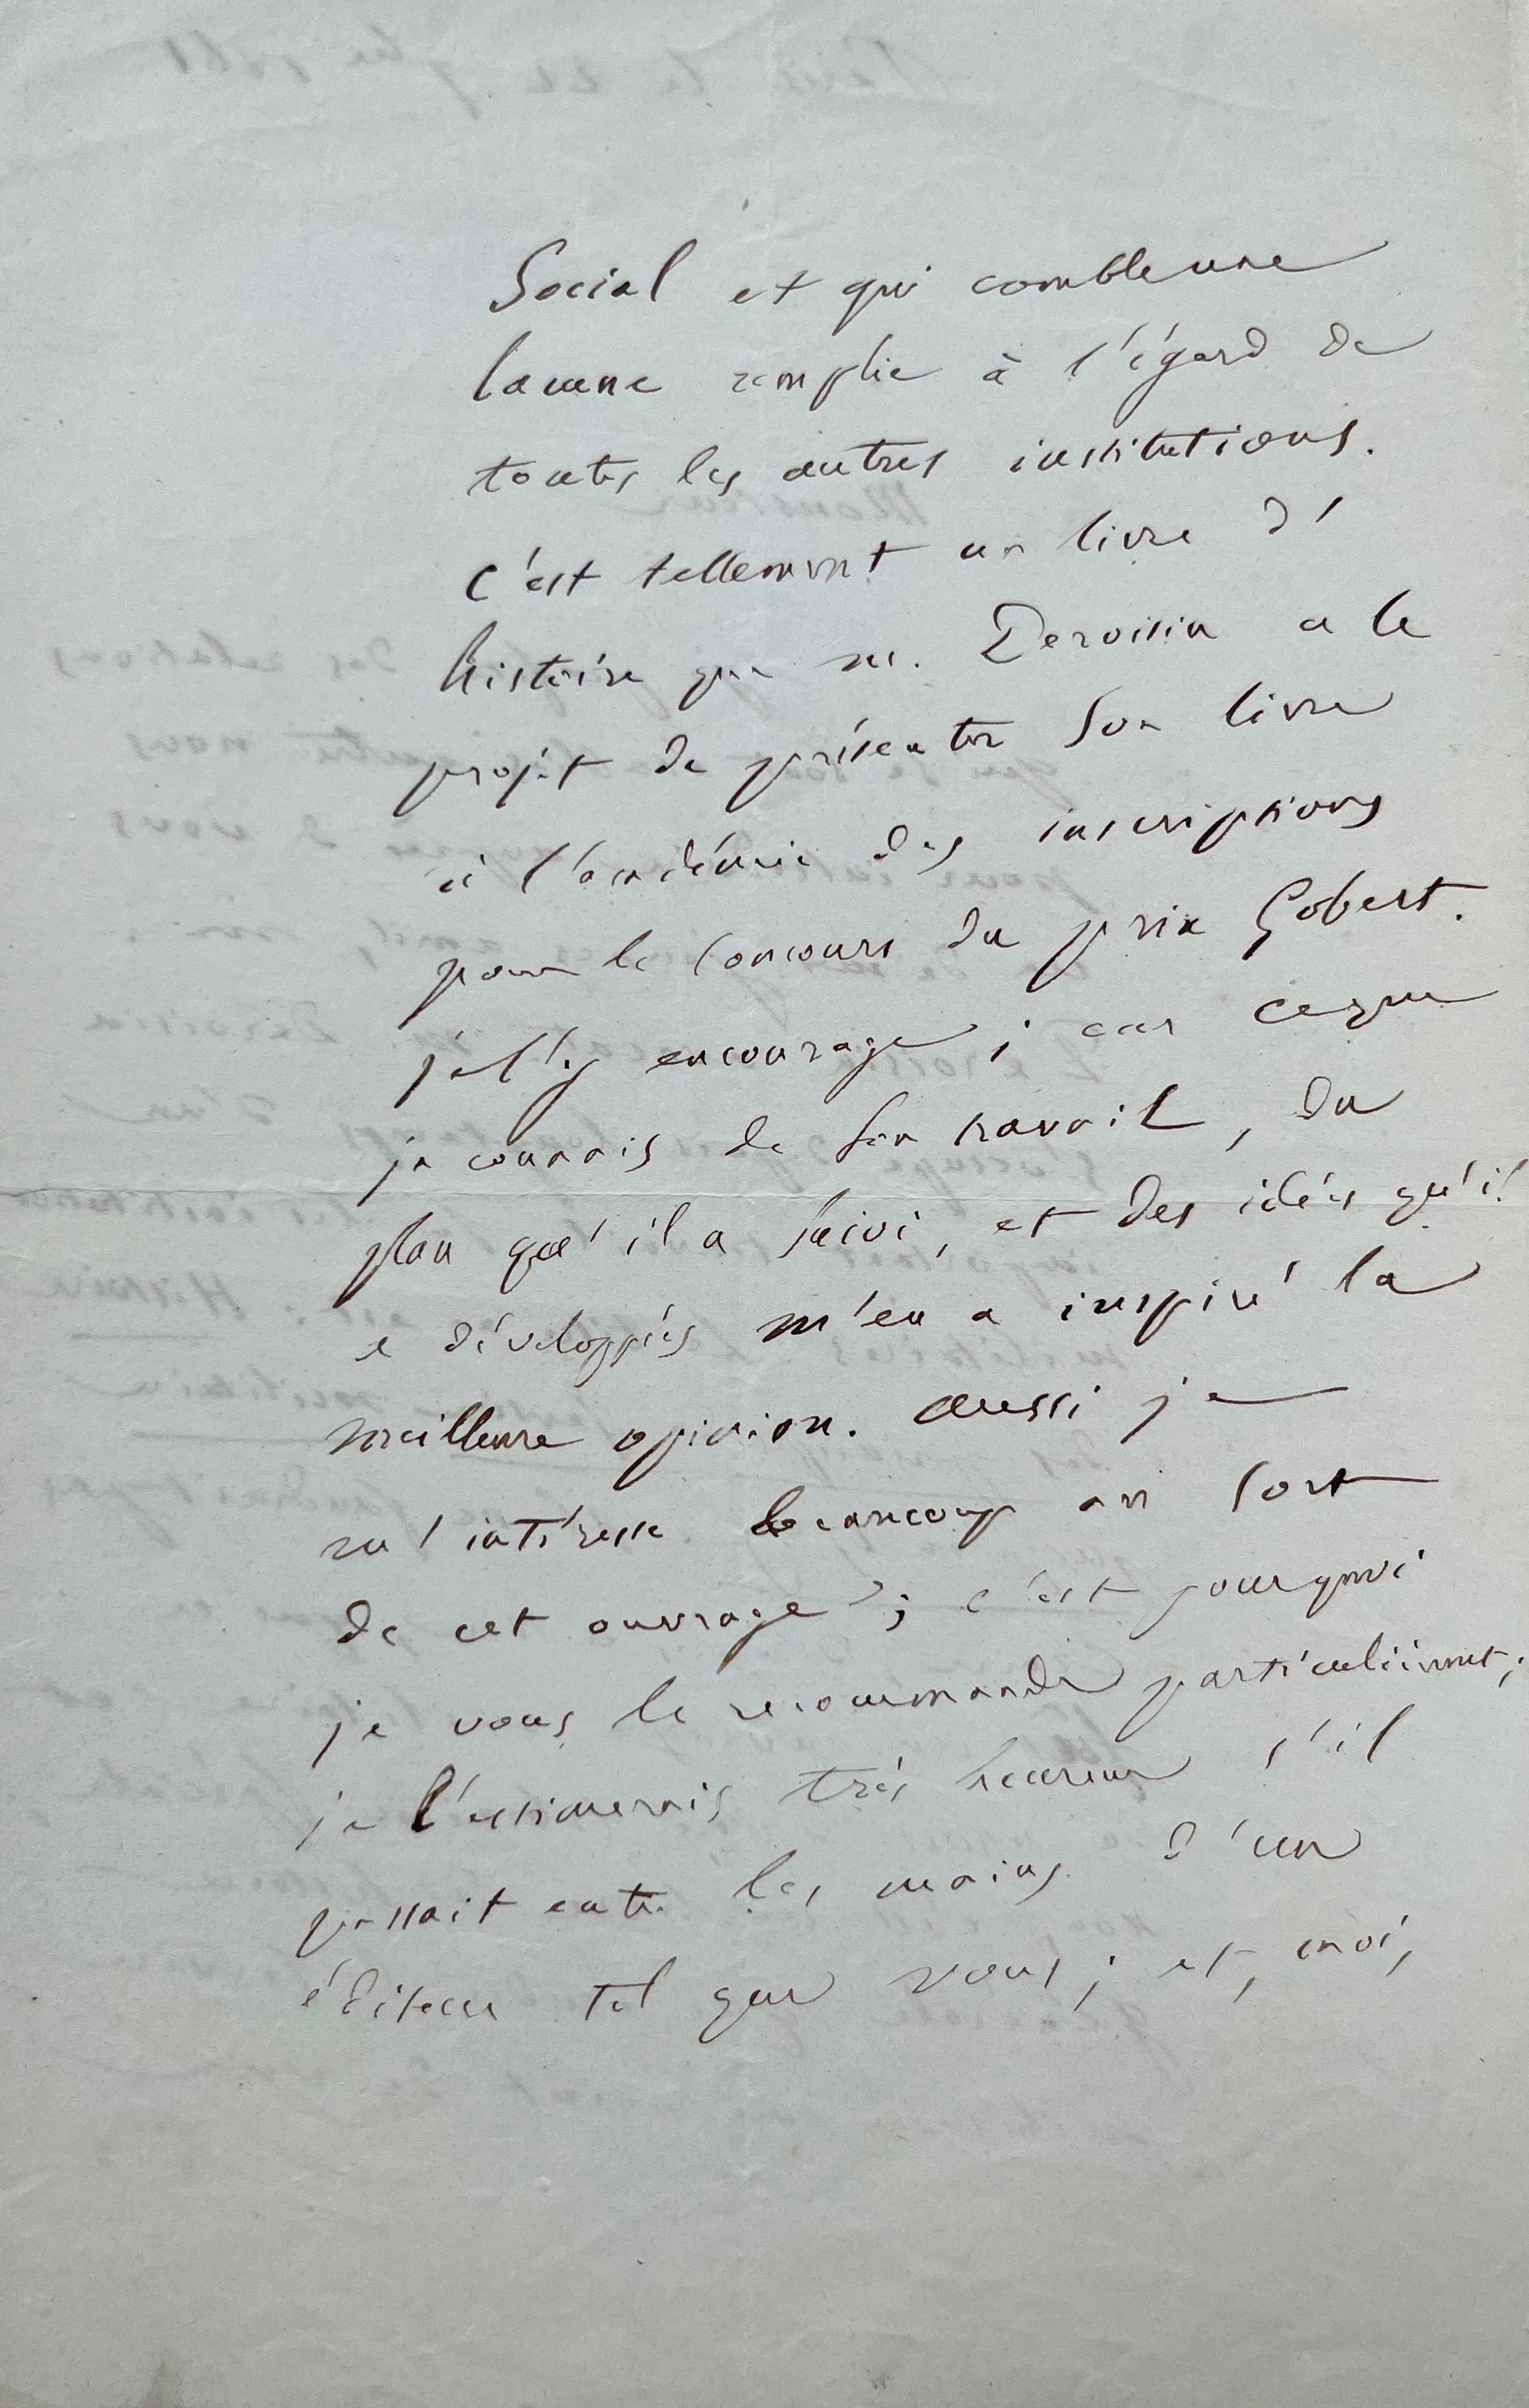 Social et qui comble une
lacune remplie à l'égard de
toutes les autres institutions.
C'est tellement un livre d'
histoire que m. Deroisin a le
projet de présenter son livre
à l'académie des inscriptions
pour le concours du prix Gobert.
je l'y encourage ; car ce que
je connais de son travail, du
plan qu'il a suivi, et des idées qu'il
a développées m'en a inspiré la
meilleure opinion. aussi je
m'intéresse beaucoup au sort
de cet ouvrage ; c'est pourquoi
je vous le recommande particulièrement ;
je l'estimerais très heureux s'il
passait entre les mains d'un
éditeur tel que vous ; et, moi,